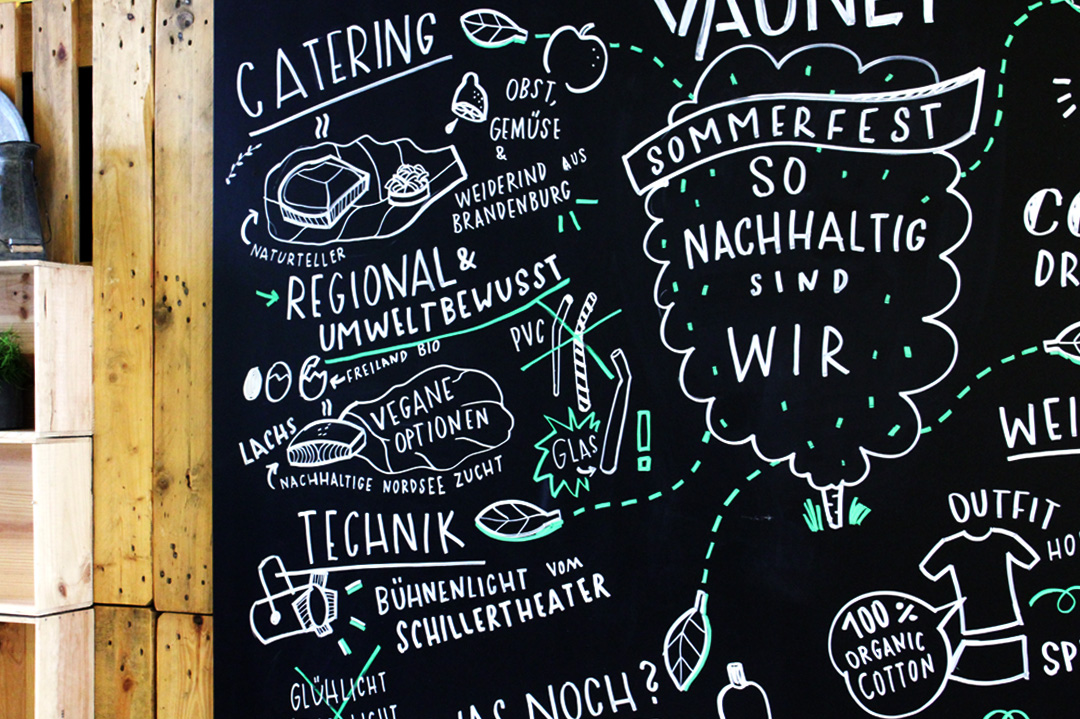 CATERING
OBST,
GEMÜSE
&
WEIDERIND AUS
BRANDENBURG
NATURTELLER
REGIONAL &
UMWELTBEWUSST
FREILAND BIO
PVC
LACHS
VEGANE
OPTIONEN
NACHHALTIGE NORDSEE ZUCHT
GLAS
!
TECHNIK
BÜHNENLICHT VOM
SCHILLERTHEATER
GLÜHLICHT
NOCH?
SOMMERFEST
SO
NACHHALTIG
SIND
WIR
DR
WEI
OUTFIT
HO
100%
ORGANIC
COTTON
SP